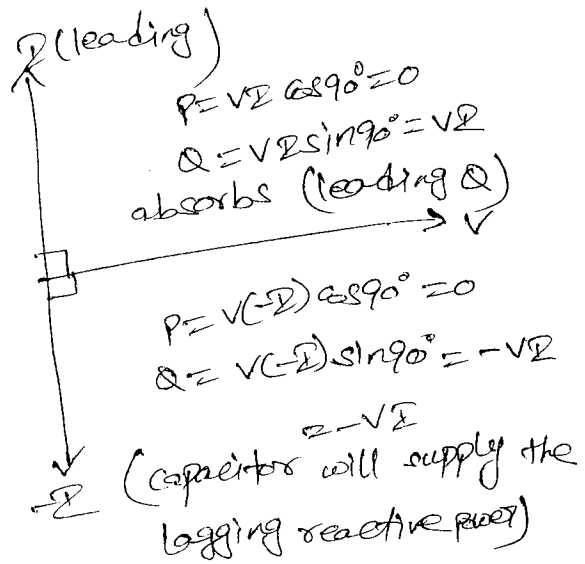 I (leading)
P = VI cos90° = 0
Q = VI sin90° = VI
absorbs (leading Q)
V
P = V(-I) cos90° = 0
Q = V(-I) sin90° = -VI
= -VI
-I (capacitor will supply the
lagging reactive power)